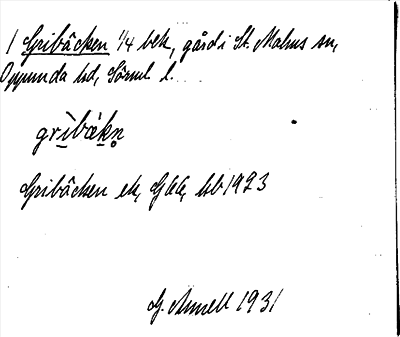 1 Gribäcken 1/4 bek, gård i St. Malms sn,
Oppunda hd, Sörml l.
grìbæ̀kn̥
Gribäcken ek, G66, hb 1923
G. Annell 1931